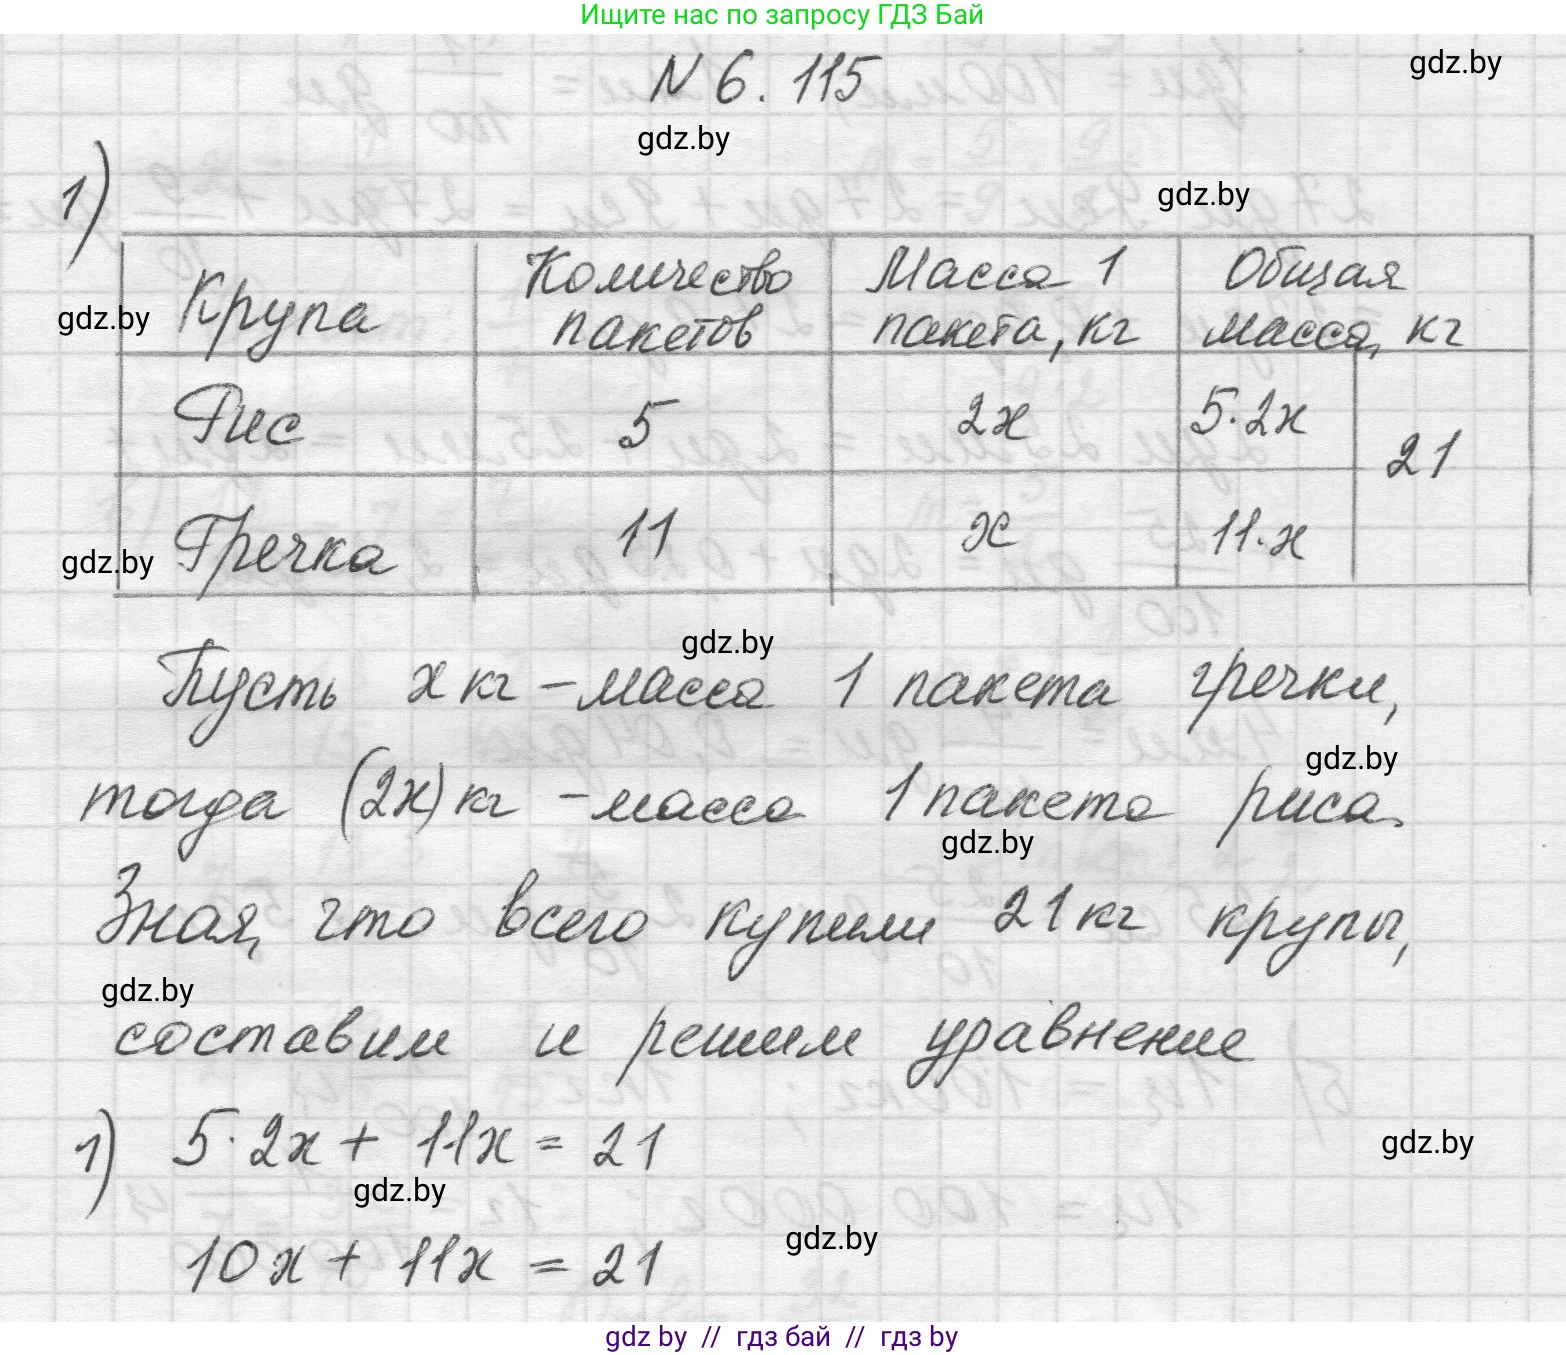 Ищите нас по запросу ГДЗ Бай
N 6.115
gdz.by
gdz.by
gdz.by
1)
Крупа | Количество пакетов | Масса 1 пакета, кг | Общая масса, кг
gdz.by
Рис | 5 | 2х | 5·2х | 21
Гречка | 11 | х | 11·х
gdz.by
gdz.by
Пусть х кг - масса 1 пакета гречки,
gdz.by
тогда (2х) кг - масса 1 пакета риса.
gdz.by
Зная, что всего купили 21 кг крупы,
gdz.by
составим и решим уравнение
1) 5·2х + 11х = 21
gdz.by
gdz.by
gdz.by
10х + 11х = 21
gdz by // гдз бай // гдз by